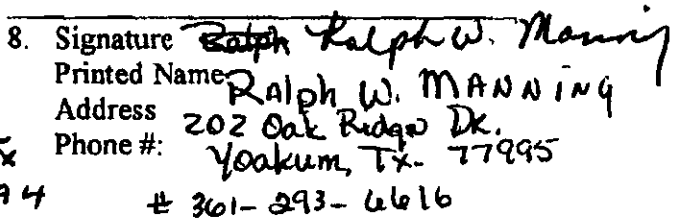 8. Signature Ralph Ralph W. Manning
Printed Name Ralph W. MANNING
Address 202 Oak Ridge Dr.
Phone #: Yoakum, Tx. 77995
# 361-293-6616